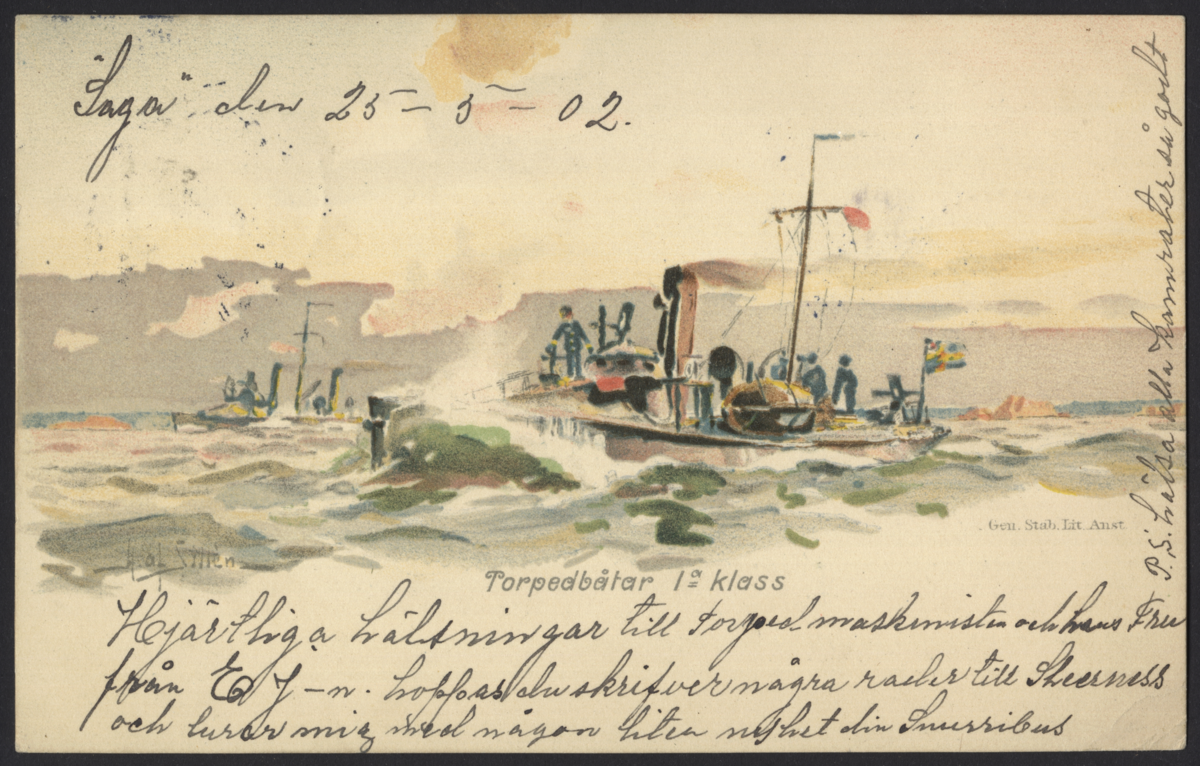 "Saga" den 25 – 5 – 02.
Gen. Stab. Lit. Anst.
Torpedbåtar 1ª klass
Hjärtliga hälsningar till torpedmaskinisten och hans Fru
från E J–n. hoppas du skrifver några rader till Sheerness
och lurar mig med någon liten nyhet din Snurribus
P.S. hälsa alla kamrater så godt